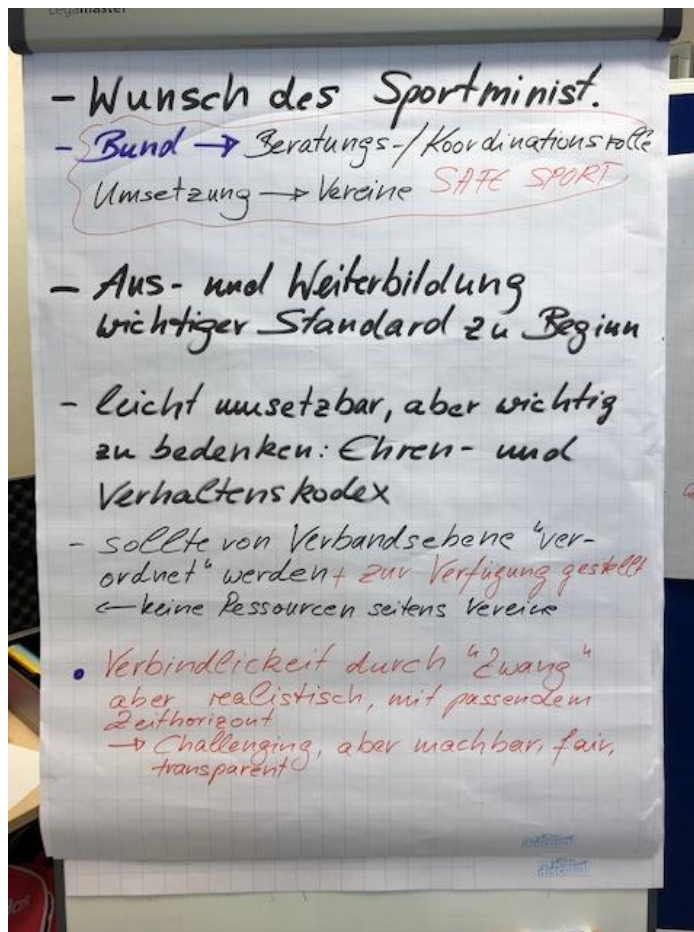 Legamaster
- Wunsch des Sportminist.
- Bund → Beratungs-/Koordinationsrolle
Umsetzung → Vereine SAFE SPORT
- Aus- und Weiterbildung
wichtiger Standard zu Beginn
- leicht umsetzbar, aber wichtig
zu bedenken: Ehren- und
Verhaltenskodex
- sollte von Verbandsebene "ver-
ordnet" werden + zur Verfügung gestellt
← keine Ressourcen seitens Vereine
• Verbindlickeit durch "Zwang"
aber realistisch, mit passendem
Zeithorizont
→ Challenging, aber machbar, fair,
transparent